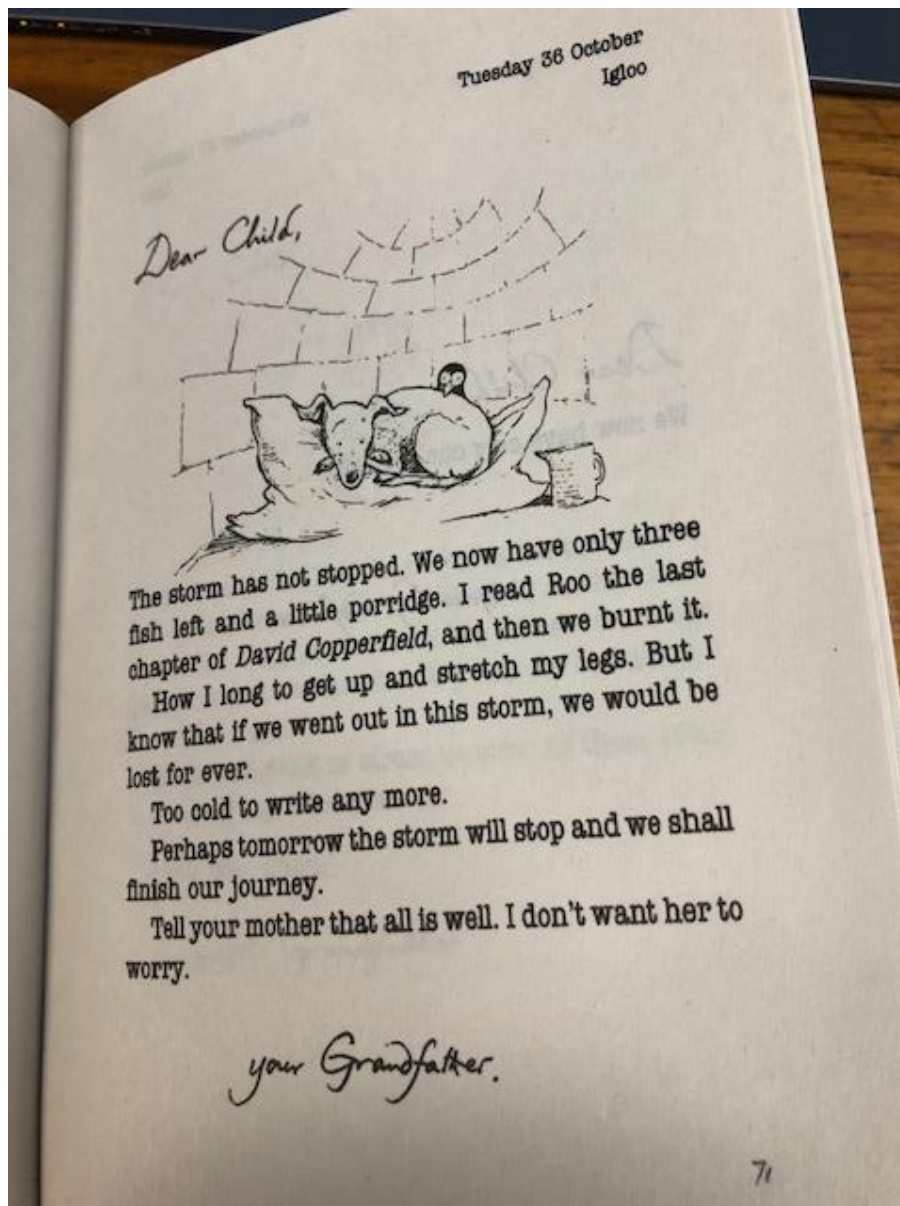 Tuesday 36 October
Igloo
Dear Child,
The storm has not stopped. We now have only three
fish left and a little porridge. I read Roo the last
chapter of David Copperfield, and then we burnt it.
How I long to get up and stretch my legs. But I
know that if we went out in this storm, we would be
lost for ever.
Too cold to write any more.
Perhaps tomorrow the storm will stop and we shall
finish our journey.
Tell your mother that all is well. I don't want her to
worry.
your Grandfather.
71